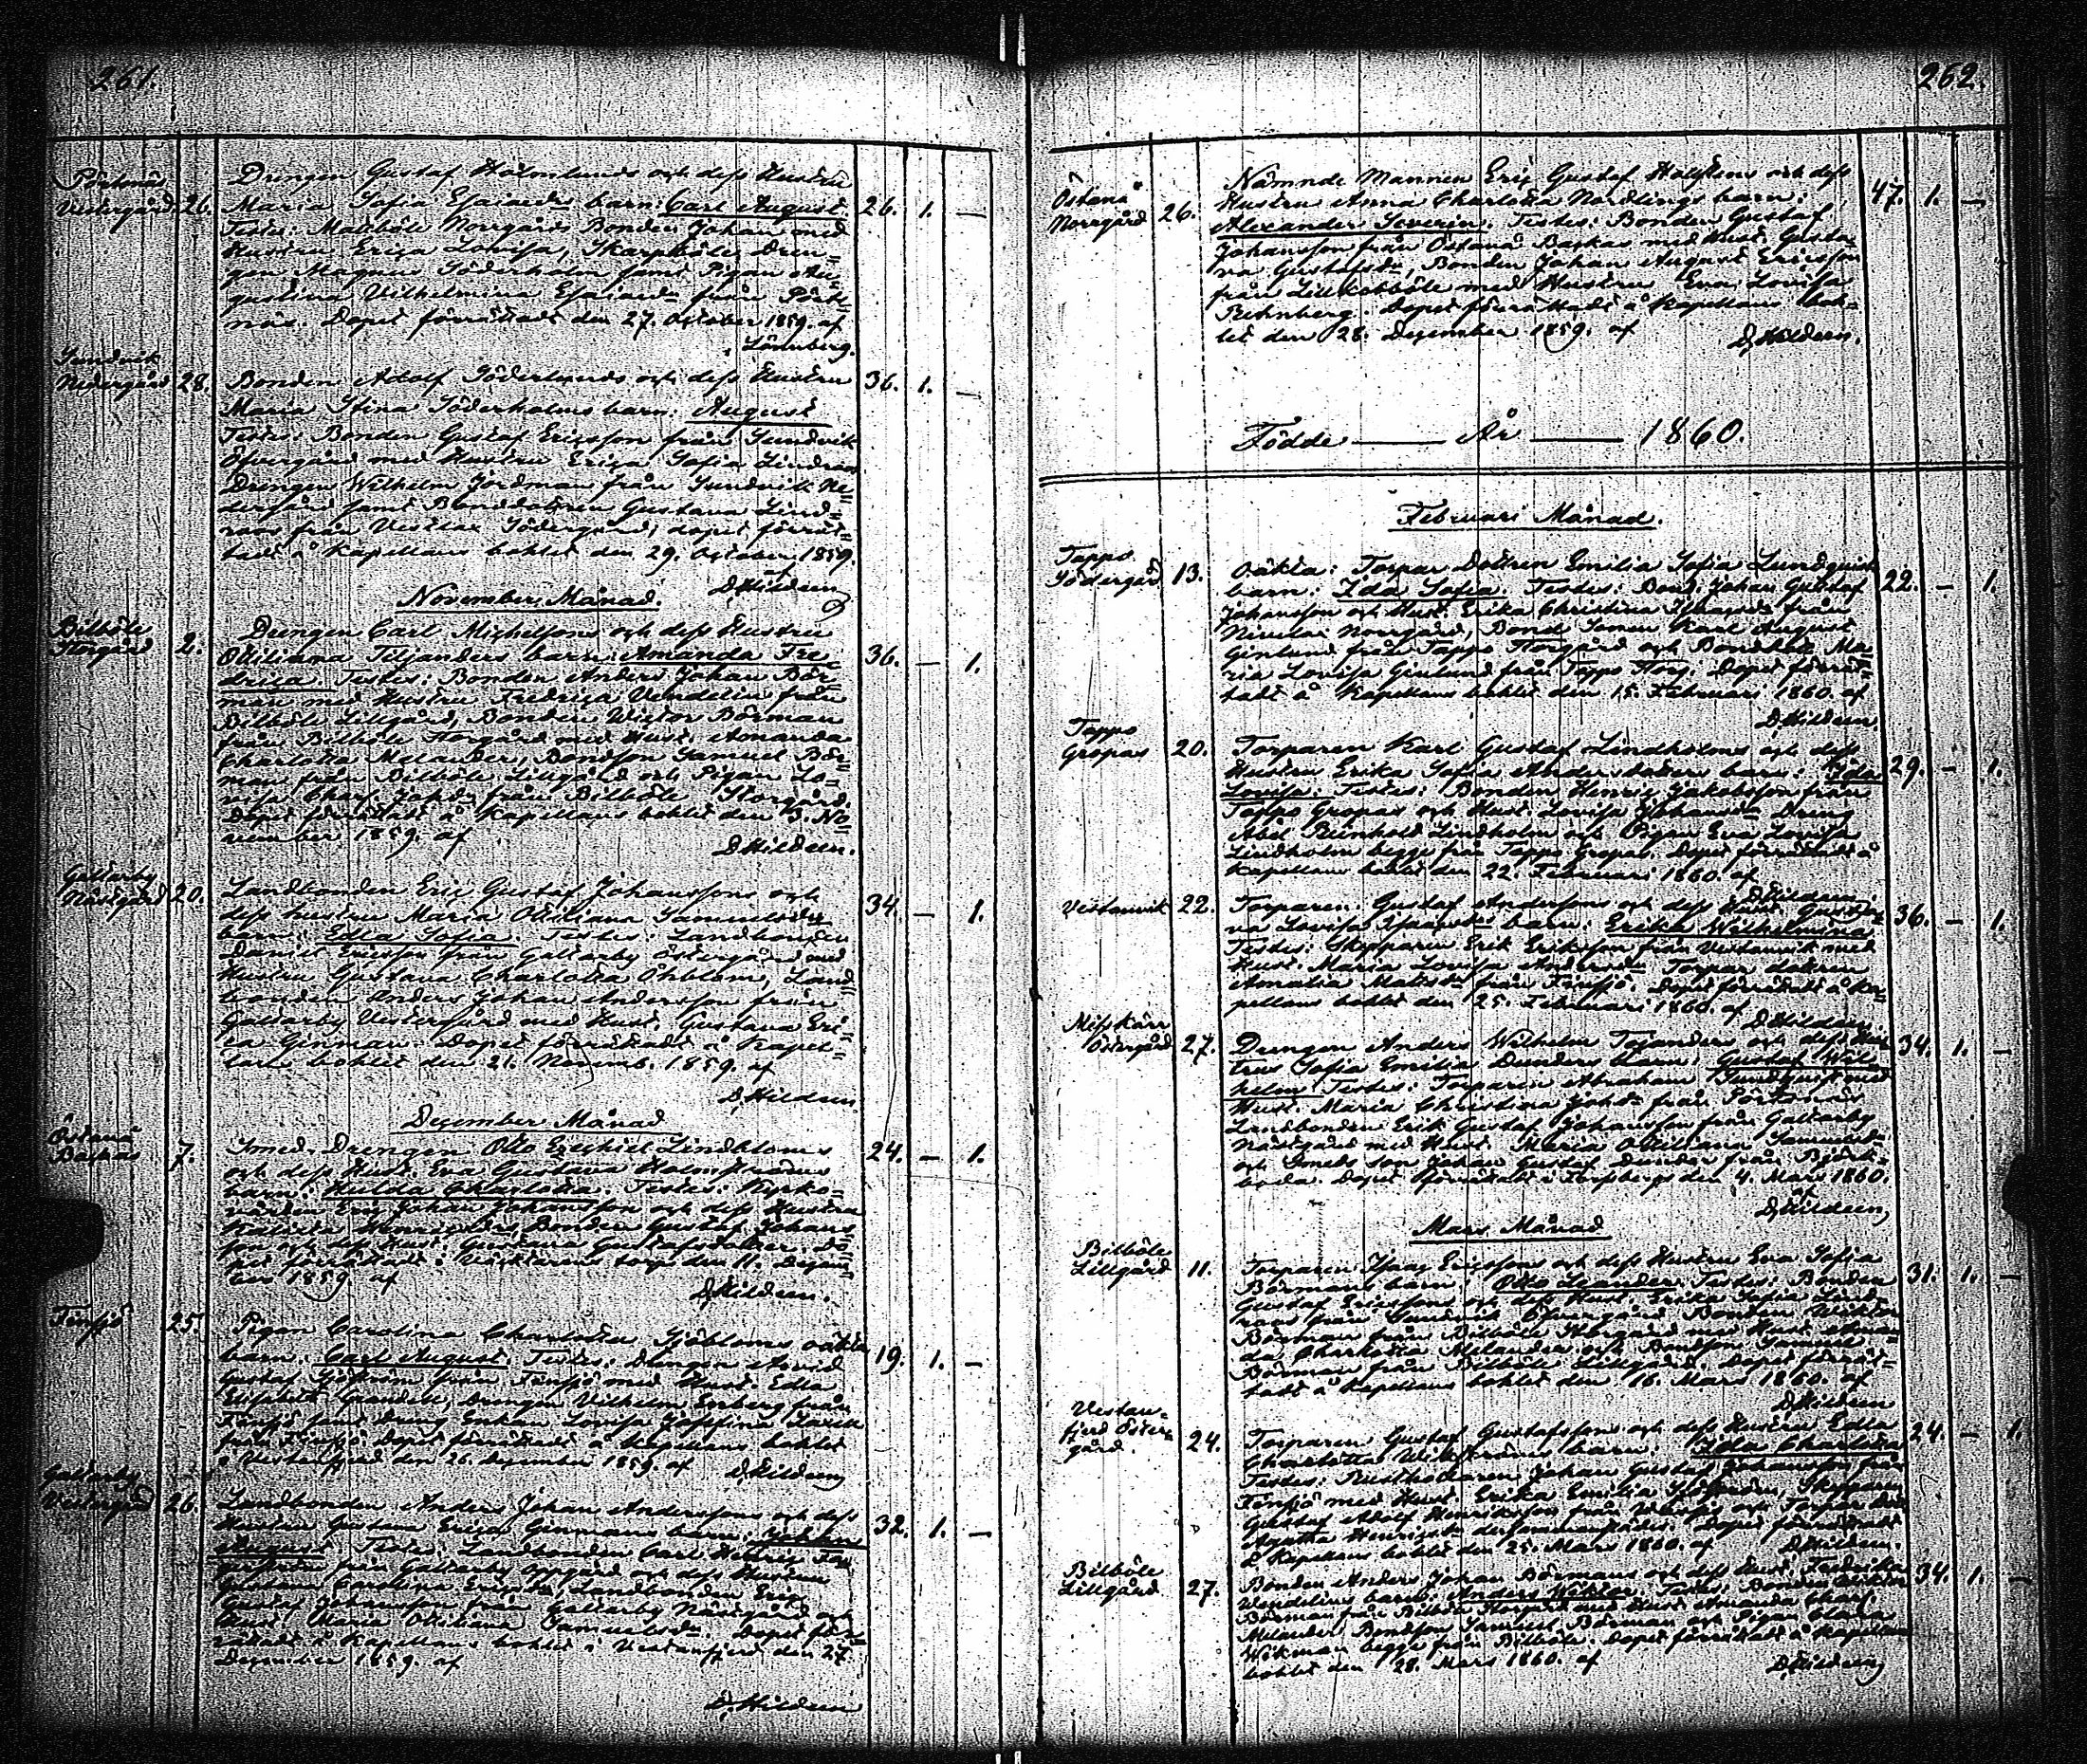 261.
Pörtsnäs
Vestergård 26.
Drengen Gustaf Holmlunds och dess Hustru
Maria Sofia Esaiaedrs barn: Carl August.
26. 1. —
Testes: Mattböle Norrgårds Bonden Johan med
Hustrun Erica Lovisa, Skarpböle Dren-
gen Magnus Söderholm samt Pigan Au-
gustina Vilhelmina Esaiaedr från Pört-
näs. Dopet förrättadt den 27. October 1859. af
Lönnberg.
Sundvik
Nedergård 28.
Bonden Adolf Söderlunds och dess Hustru
36. 1. —
Maria Stina Söderholms barn: August
Testes: Bonden Gustaf Ericsson från Sundvik
Öfvergård med Hustru Erica Sofia Lindroos
Drengen Wilhelm Jördman från Sundvik Ne-
dergård samt Bonddottren Gustava Lind-
roos från Södergård, dopet förrät-
tadt å Kapellans bohlet den 29. October 1859.
af
DHildeen
November Månad.
Bilböle
Storgård 2.
Drengen Carl Michelssons och dess Hustru
Otiliana Tiljanders barn: Amanda Fre-
36. — 1.
drica. Testes: Bonden Anders Johan Bör-
man med Hustru Fredrica Vendelin från
Bilböle Lillgård, Bonden Wictor Börman
från Bilböle Storgård med Hust. Amanda
Charlotta Melander, Bondson Samuel Bör-
man från Bilböle Lillgård och Pigan Lo-
visa Charl. Johsdr från Bilböle Storgård.
Dopet förrättadt å Kapellans bohlet den 3. No-
vember 1859. af
DHildeen.
Galtarby
Nästgård 20.
Landbonden Eric Gustaf Johanssons och
dess hustru Maria Otiliana Samuelsdrs
34. — 1.
barn: Edla Sofia. Testes: Landbonden
Daniel Ericsson från Galtarby Östergård med
Hustru Gustava Charlotta Öhblom, Land-
bonden Anders Johan Andersson från
Galtarby Vestergård med Hust. Gustava Eri-
ca Ginman. Dopet förrättadt å Kapel-
lans bohlet den 21. Novemb. 1859. af
DHildeen.
December Månad
Östanå
Backas 7.
Smed-Drengen Otto Ezechiel Lindbloms
24. — 1.
och dess Hust. Eva Gustava Holmströms
barn: Hulda Charlotta. Testes: Kyrko-
värden Eric Johan Johansson och dess Hustru
Bonden Gustaf Johans-
son och dess Hust. Gustava Gustafsdotter. Do-
pet förrättadt i torp den 11. Decem-
ber 1859. af
DHildeen.
Finsjö 25.
Pigan Carolina Charlotta Sjöbloms oäkta
barn: Carl August. Testes: Drengen Arvid
19. 1. —
Gustaf från Finsjö med Hust. Edla
Drengen Vilhelm Enberg från
Finsjö samt Dreng Enkan Lovisa Josefina
från Finsjö. Dopet förrättadt å Kapellans bohlet
i Vestanfjerd den 26 December 1859. af DHildeen
Galtarby
Vestergård 26.
Landbonden Anders Johan Anderssons och dess
Hustru Gustava Erica Ginmans barn: Johan
32. 1. —
August. Testes: Landbonden Carl Henric
från Galtarby Oppgård och dess Hustru
Gustava Carolina Ericsdr, Landbonden Eric
Gustaf Johansson från Galtarby Nästgård och
Hust. Maria Otiliana Samuelsdr. Dopet för-
rättadt å Kapellans bohlet i Vestanfjerd den 27.
December 1859. af
DHildeen
262.
Östanå
Norrgård 26.
Nämnde Mannen Eric Gustaf Holstens och dess
Hustru Anna Charlotta Nordlings barn:
47. 1. —
Alexander Severin. Testes: Bonden Gustaf
Johansson från Östanå Backas med Hust. Gusta-
va Gustafsdr, Bonden Johan August Ericsson
från Lillkobböle med Hustru Eva Lovisa
Rehnberg. Dopet förrättadt å Kapellans boh-
let den 28. December 1859. af
DHildeen.
Födde — År — 1860.
Februari Månad.
Tappo
Södergård 13.
Oäkta: Torpar Dottren Emilia Sofia Lundqvists
22. — 1.
barn: Ida Sofia. Testes: Bond. Johan Gustaf
Johansson och Hust. Erika Christina från
Nivelax Norrgård, Bond Sonen Karl August
Ginlund från Tappo Storgård och Ma-
ria Lovisa Ginlund från Tappo Storg: Dopet förrät-
tadt å Kapellans bohlet den 15. Februari 1860. af
DHildeen.
Tappo
Gropas 20.
Torparen Karl Gustaf Lindholms och dess
Hustru Erika Sofia Andersdotters barn: Ida
29. — 1.
Lovisa. Testes: Bonden Henric Jakobsson från
Tappo Gropas och Hust. Lovisa Johansdr Dreng
Abel Reinhold Lindholm och Pigan Eva Lovisa
Lindholm begge från Tappo Gropas. Dopet förrättadt å
Kapellans bohlet den 22. Februari 1860. af
DHildeen.
Vestanvik 22.
Torparen Gustaf Anderssons och dess Hust. Gusta-
va Lovisa Isaacsdrs barn: Erika Wilhelmina.
36. — 1.
Testes: Skepparen Erik Eriksson från Vestanvik med
Hust. Maria Lovisa Andersdr Torpar dottren
Amalia Matsdr från Finsjö. Dopet förrättadt å Ka-
pellans bohlet den 25. Februari 1860. af
DHildeen
Misskärr
Östergård 27.
Drengen Anders Wilhelm Tojanders och dess Hus-
trus Sofia Emilia Dunders barn: Gustaf Wil-
34. 1. —
helm. Testes: Torparen Abraham Sundqvist med
Hust. Maria Christina Johsdr från Pörtsnäs
Landbonden Erik Gustaf Johansson från Galtarby
Nästgård med Hust. Maria Otiliana Samuelsdr
och Smeds son Johan Gustaf Dunder från Björk-
boda. Dopet förrättadt i den 4. Mars 1860.
af
DHildeen
Mars Månad
Bilböle
Lillgård 11.
Torparen Isaac Ericssons och dess Hustru Eva Sofia
Börmans barn: Otto Leander. Testes: Bonden
31. 1. —
Gustaf Ericsson och dess Hust. Erika Sofia Lind-
roos från Sundvik Öfvergård, Bonden Wicktor
Börman från Bilböle Storgård med Hust. Aman-
da Charlotta Melander och Bondson Samuel
Börman från Bilböle Lillgård. Dopet förrät-
tadt å Kapellans bohlet den 16. Mars 1860. af
DHildeen
Vestan-
fjerd Öster-
gård. 24.
Torparen Gustaf Gustafssons och dess Hustru Edla
Charlotta Wikströms barn: Ida Charlotta
24. — 1.
Testes: Rusthållaren Johan Gustaf Johansson från
Finsjö med Hust. Erika Emilia Skepparen
Gustaf Adolf Henriksson från och Torpar
Agatha Henricsdr dersammastädes. Dopet förrättadt
å Kapellans bohlet den 25. Mars 1860. af DHildeen.
Bilböle
Lillgård 27.
Bonden Anders Johan Börmans och dess Hust. Fredrika
Wendelins barn: Anders Wiktor. Testes: Bonden Wiktor
34. 1. —
Börman från Bilböle Storgård med Hust. Amanda Charl.
Melander, Bondson Samuel Börman och Pigan
Wikman begge från Bilböle. Dopet förrättadt å Kapellans
bohlet den 28. Mars 1860. af
DHildeen